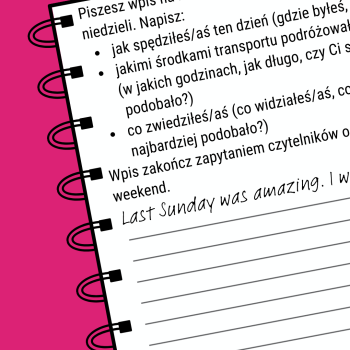 Piszesz wpis na
niedzieli. Napisz:
• jak spędziłeś/aś ten dzień (gdzie byłeś,
• jakimi środkami transportu podróżował
(w jakich godzinach, jak długo, czy Ci s
podobało?)
• co zwiedziłeś/aś (co widziałeś/aś, co
najbardziej podobało?)
Wpis zakończ zapytaniem czytelników o
weekend.
Last Sunday was amazing. I w